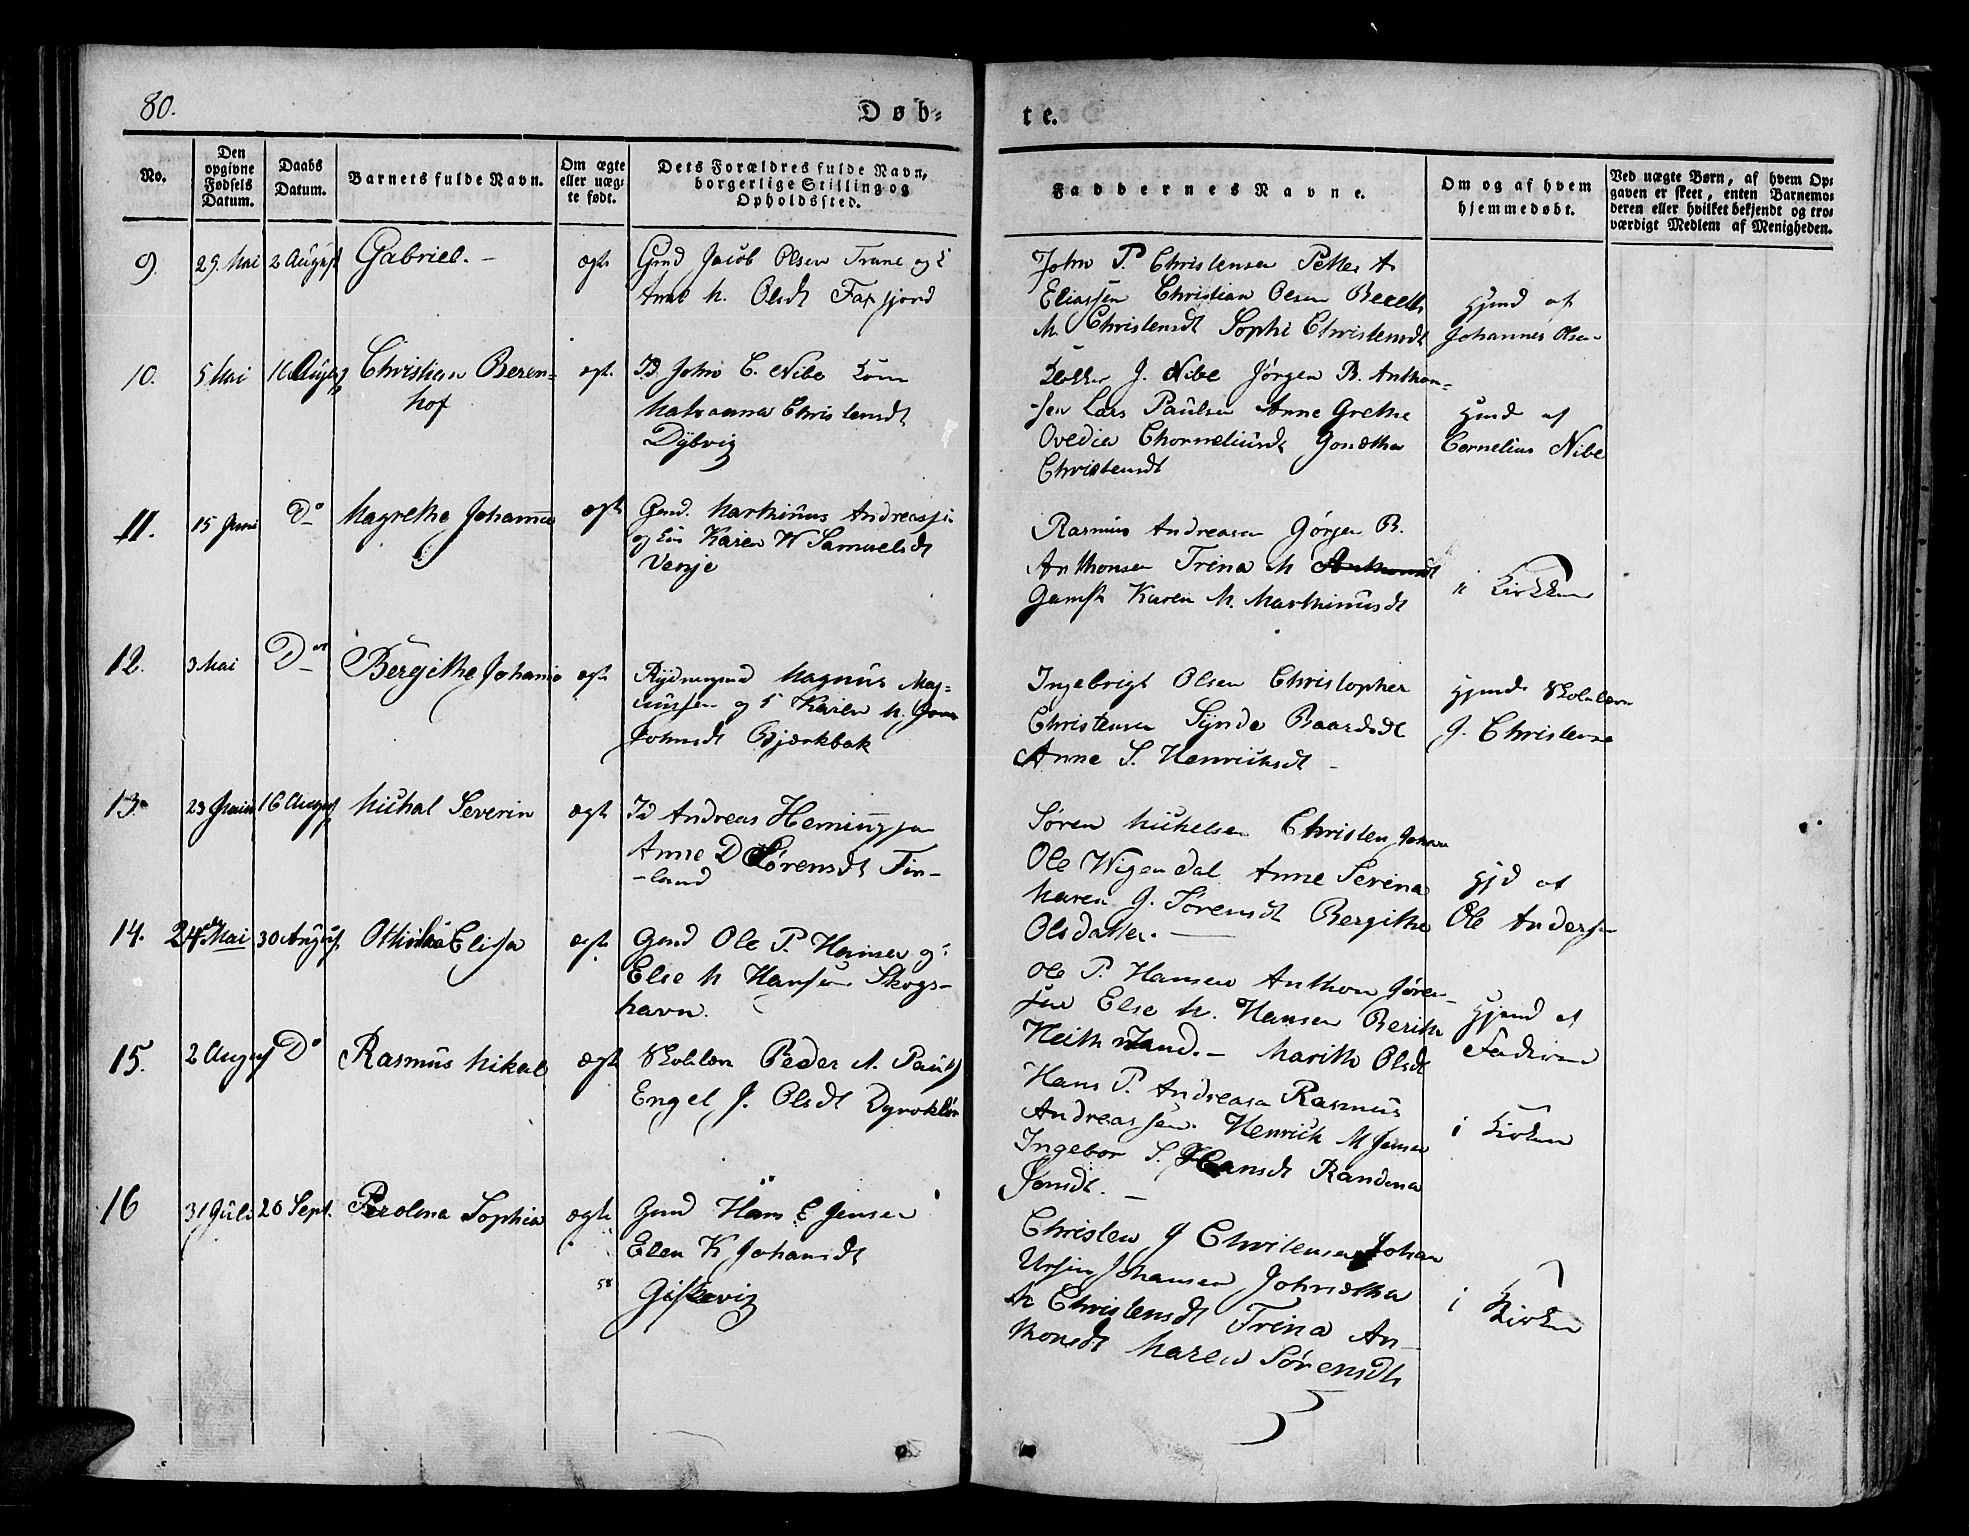 80.
Døb-
te.
No.
Den opgivne Fødsels Datum.
Daabs Datum.
Barnets fulde Navn.
Om ægte eller uæg-te født.
Dets Forældres fulde Navn, borgerlige Stilling og Opholdssted.
Faddernes Navne.
Om og af hvem hjemmedøbt.
Ved uægte Børn, af hvem Op-
gaven er skeet, enten Barnemo-
deren eller hvilket bekjendt og tro-
værdigt Medlem af Menigheden.
9. 29. Mai 2 August Gabriel. - ægte Gmd Jacob Olsen Trane og
Anne M. Olsdt Faxfjord
John P. Christensen Petter A
Eliassen Christian Olsen Berette
M Christensdt Sophi Christensdt
Hjmd af
Johannes Olsen
10. 5 Mai 16 August Christian Beren-
hof
ægt. John C. Nibe
Malvanna Christensdt
Dybvig
J. Nibe Jørgen B. Anthon-
-sen Lars Paulsen Anne Grethe
Ovedia Chorneliusdt Jonetha
Christensdt
Hjmd af
Cornelius Nibe
11. 15 Juni Do Magrethe Johanna ægte Gmd. Marthinus Andreassen
og Karen W Samuelsdt
Venje
Rasmus Andreasen Gørgen B.
Anthonsen Trina M
Karen M. Marthinusdt
i Kirken
12. 3 Mai Do Bergithe Johanna ægt Magnus Mag-
nussen og Karen M.
Johnsdt Bjærkbak
Ingebrigt Olsen Christopher
Christensen Synda Baardsdt
Anne S. Henriksdt -
Hjmd
J. Christense
13. 23 Juni 16 August Michal Severin ægt Andreas Hemingsen
Anne D Sørensdt Fin-
-land
Søren Michelsen Christen Johan
Ole Wigendal Anne Serina
Maren J. Sørensdt Bergithe
Olsdatter.
Hjd af
Ole Andersen
14. 24de Mai 30 August Elisa ægt. Gmd Ole P. Hansen og
Else M Hansen Skogs-
havn.
Ole P. Hansen Anthon Jøren-
sen Else M. Hansen Berith
Marith Olsdt
Hjemd af
Faderen
15. 2 August Do Rasmus Mikal ægt Peder A. Pauls
Engel J. Olsdt Dyrøklø
Hans P. Andreasen Rasmus
Andreassen. Henrich M Jensen
Ingebor S. Hansdt Randina
Jensdt. -
i Kirken
16 31 Juli 20 Sept. Perolena Sophia ægte Gmd Hans E Jensen
Elen K Johansdt
58
Giskevig
Christen J Christensen Johan
Ursin Johansen Johnetha
M Christensdt Trina An-
thonsdt Maren Sørensdt
i Kirken